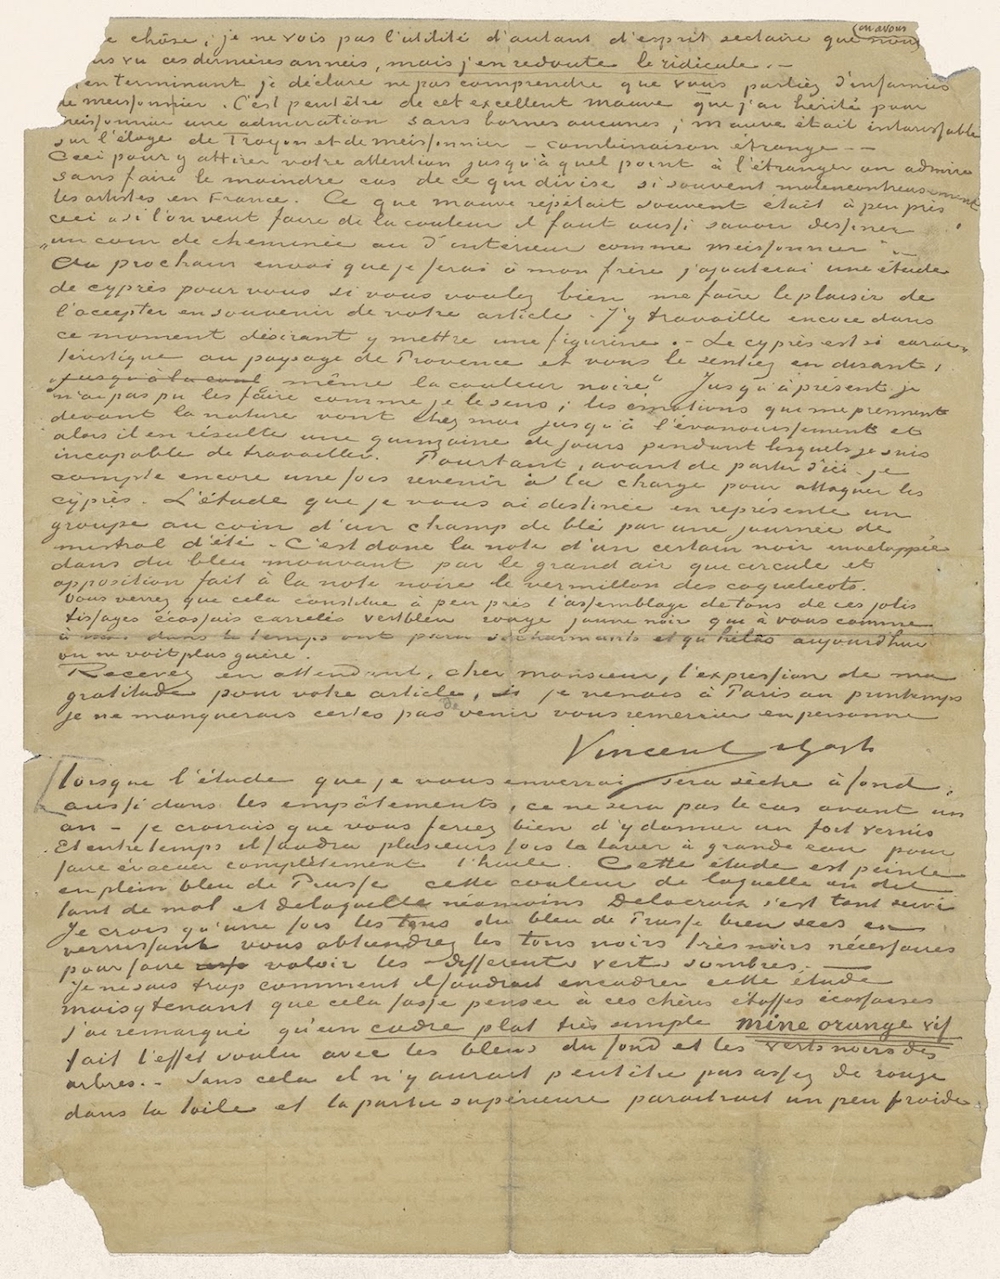 (en avons
e chôse; je ne vois pas l'utilité d'autant d'esprit sectaire que nous
ns vu ces dernières années, mais j'en redoute le ridicule. –
en terminant je déclare ne pas comprendre que vous parliez d'infamies
de meissonnier. C'est peut être de cet excellent mauve que j'ai hérité pour
meissonnier une admiration sans bornes aucunes; mauve était intarissable
sur l'éloge de Troyon et de meissonnier – combinaison étrange. – –
Ceci pour y attirer votre attention jusqu'à quel point à l'étranger on admire
sans faire le moindre cas de ce qui divise si souvent malencontreusement
les artistes en France. Ce que mauve répétait souvent était à peu près
ceci "si l'on veut faire de la couleur il faut aussi savoir dessiner
„un coin de cheminée ou d'intérieur comme meissonnier" –
Au prochain envoi que je ferai à mon frère j'ajouterai une étude
de cyprès pour vous si vous voulez bien me faire le plaisir de
l'accepter en souvenir de votre article. J'y travaille encore dans
ce moment désirant y mettre une figurine. – Le cyprès est si carac-
téristique au paysage de Provence et vous le sentiez en disant:
„jusqu'à la coul même la couleur noire". Jusqu'à présent je
n'ai pas pu les faire comme je le sens; les émotions que me prennent
devant la nature vont chez moi jusqu'à l'évanouissement et
alors il en résulte une quinzaine de jours pendant lesquels je suis
incapable de travailler. Pourtant, avant de partir d'ici je
compte encore une fois revenir à la charge pour attaquer les
cyprès. L'étude que je vous ai destinée en représente un
groupe au coin d'un champ de blé par une journée de
mistral d'été. – C'est donc la note d'un certain noir enveloppée
dans du bleu mouvant par le grand air qui circule et
opposition fait à la note noire le vermillon des coquelicots.
Vous verrez que cela constitue à peu près l'assemblage de tons de ces jolis
tissages écossais carrelés vert bleu rouge jaune noir qui à vous comme
à moi dans le temps ont paru si charmants et qu'hélas aujourd'hui
on ne voit plus guère.
Recevez en attendant, cher monsieur, l'expression de ma
gratitude pour votre article, si je venais à Paris au printemps
je ne manquerais certes pas de venir vous remercier en personne
Vincent v Gogh
lorsque l'étude que je vous enverrai sera sèche à fond,
aussi dans les empâtements, ce ne sera pas le cas avant un
an – je croirais que vous feriez bien d'y donner un fort vernis
Et entretemps il faudra plusieurs fois la laver à grande eau pour
faire évacuer complètement l'huile. Cette étude est peinte
en plein bleu de Prusse cette couleur de laquelle on dit
tant de mal et de laquelle néamoins Delacroix s'est tant servi
Je crois qu'une fois les tons du bleu de Prusse bien secs en
vernissant vous obtiendrez les tons noirs très noirs nécessaires
pour faire valoir les differents verts sombres. –
Je ne sais trop comment il faudrait encadrer cette étude
mais y tenant que cela fasse penser à ces chères étoffes écossaises
j'ai remarqué qu'un cadre plat très simple mine orange vif
fait l'effet voulu avec les bleus du fond et les verts noirs des
arbres. – Sans cela il n'y aurait peutêtre pas assez de rouge
dans la toile et la partie supérieure paraitrait un peu froide.